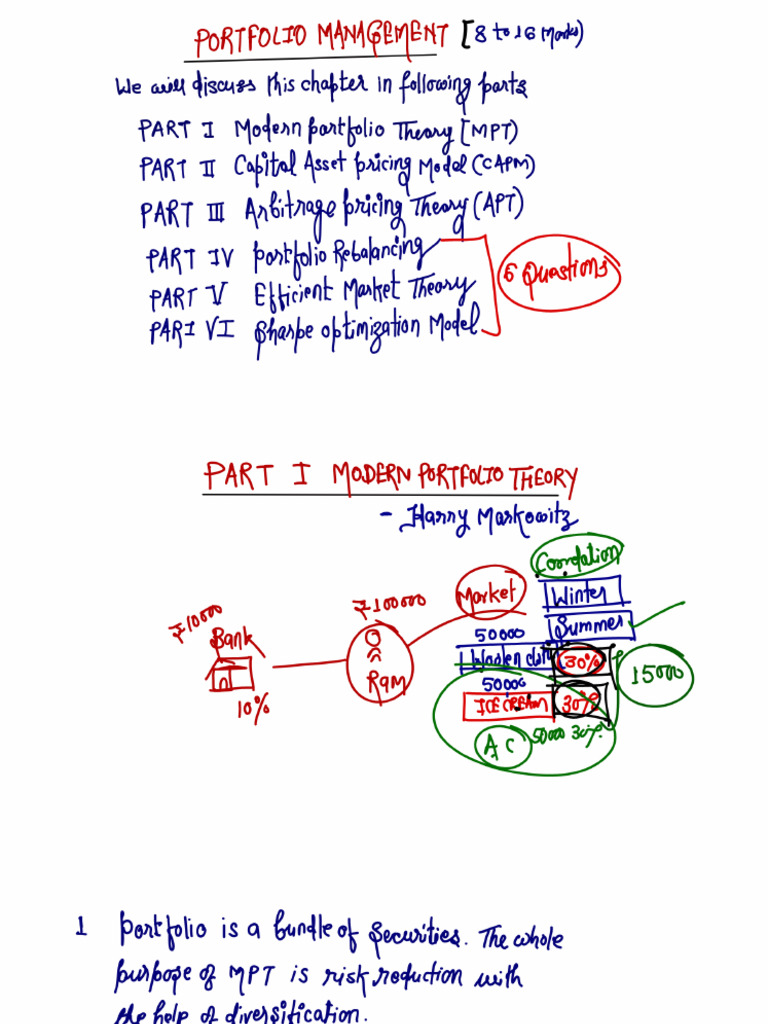 PORTFOLIO MANAGEMENT [8 to 16 Marks)
We will discuss this chapter in following parts
PART I Modern portfolio Theory [MPT)
PART II Capital Asset pricing Model (CAPM)
PART III Arbitrage pricing Theory (APT)
PART IV Portfolio Rebalancing
PART V Efficient Market Theory
PART VI Sharpe optimization Model
6 Questions
PART I MODERN PORTFOLIO THEORY
- Harry Markowitz
Correlation
Market
Winter
₹10000
₹100000
50000
Summer
Bank
Woolen
30%
15000
Ram
50000
10%
ICE CREAM
30%
AC
50000 30%
1 Portfolio is a bundle of securities. The whole
purpose of MPT is risk reduction with
the help of diversification.